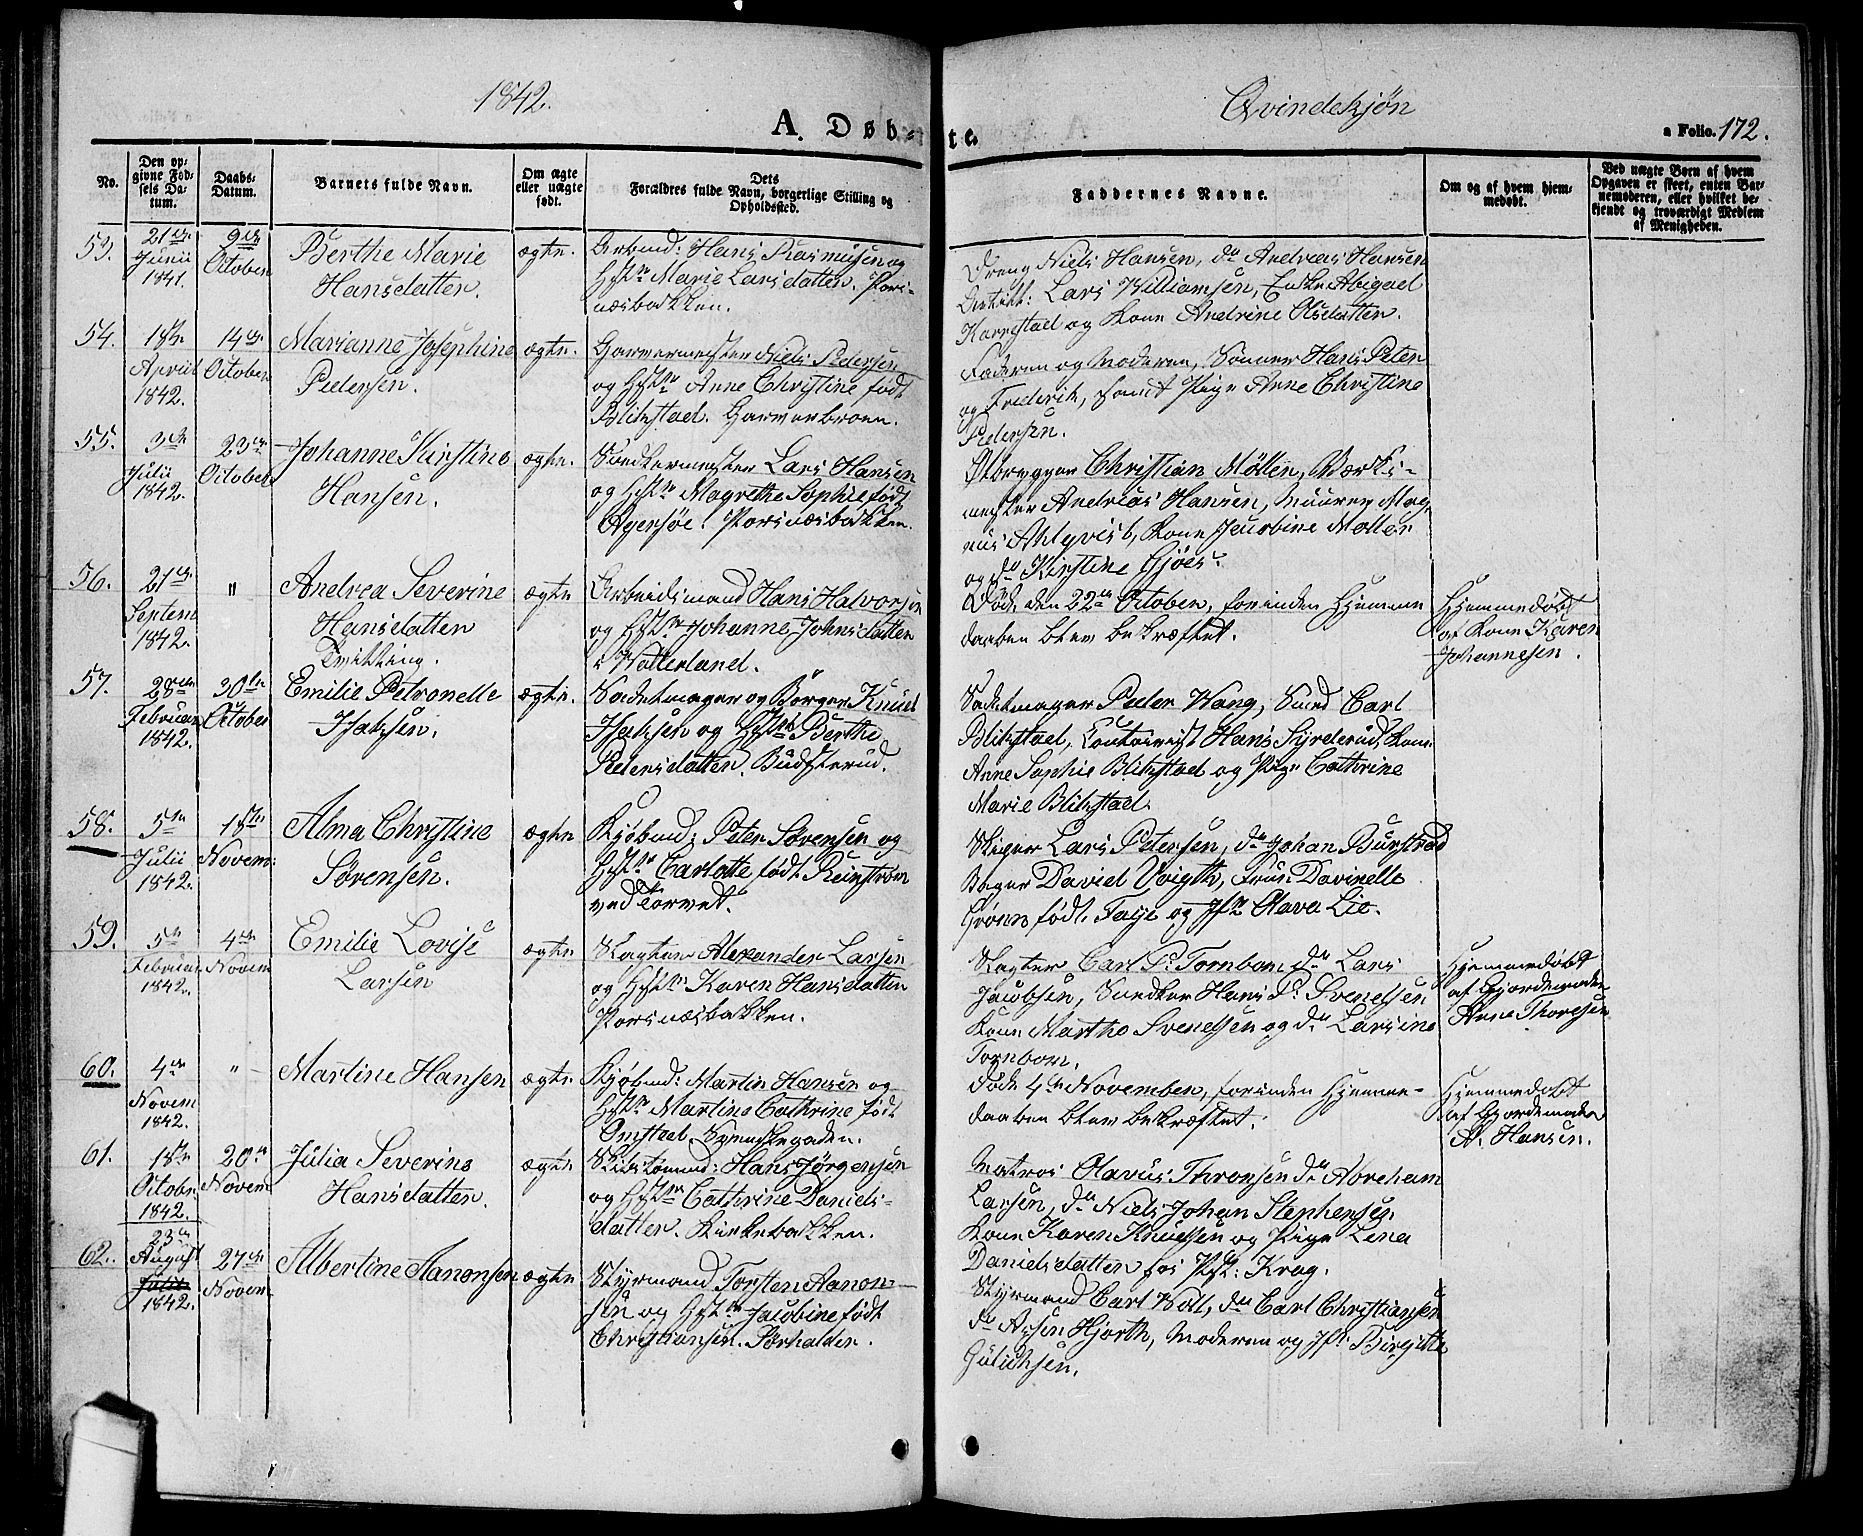 1842.
Qvindekjøn
A. Døb-
te.
a Folio. 172.
No.
Den op-
givne Fød-
sels Da-
tum.
Daabs-
Datum.
Barnets fulde Navn.
Om ægte
eller uægte
født.
Dets
Forældres fulde Navn, borgerlige Stilling og
Opholdssted.
Faddernes Navne.
Om og af hvem hjem-
medøbt.
Ved uægte Børn af hvem
Opgaven er skeet, enten Bar-
nemoderen, eller hvilket be-
kjendt og troværdigt Medlem
af Menigheden.
53.
21de
Junii
1841.
9de
October
Berthe Marie
Hansdatter.
ægte.
Arbmd: Hans Rasmusen og
Hst. Marie Larsdatter. Pors-
næsbakken.
Dreng Niels Hansen, do Andreas Hansen
Lars Williamsen, Enke Abigael
og Kone Andrine Olsdatter.
54.
18de
April
1842.
14de
October
Marianne Josephine
Pedersen.
ægte.
Garvermester Niels Pedersen
og Hst. Anne Christine født
Blikstad. Garverbroen.
Faderen og Moderen, Sønner Hans Peter
og Frederik, samt Pige Anne Christine
Pedersen.
55.
3de
Julii
1842.
23de
October
Johanne Kirstine
Hansen.
ægte.
Snedkermester Lars Hansen
og Hst. Magrethe Sophie født
Agersøe. Porsnæsbakken.
Ølbrygger Christian Møller, Værks-
mester Andreas Hansen, Muurer Mag-
nus Ahlqvist, Kone Jacobine Møller
og do Kirstine Gjøes.
56.
21de
Septem
1842.
"
Andrea Severine
Hansdatter
Tvilling.
ægte
Arbeidsmand Hans Halvorsen
og Hst. Johanne Johnsdatter
i Watterland.
Død, den 22de October, forinden Hjemme
daaben blev bekræftet.
Hjemmedøbt
af Kone Karen
Johannesen.
57.
28de
Februar
1842.
30te
October
Emilie Petronelle
Isaksen.
ægte.
Sadelmager og Borger Knud
Isaksen og Hst. Berthe
Pedersdatter. Budsterud.
Sadelmager Peder Wang, Smed Carl
Blikstad, Contoirist Hans Syrderud, Kone
Anne Sophie Blikstad og Pige Cathrine
Marie Blikstad.
58.
5te
Julii
1842.
18de
Novem:
Alma Christine
Sørensen.
ægte
Kjøbmd: Peter Sørensen og
Hst. Carlotte født Reinstrøm
ved Torvet.
Skipper Lars Petersen, do Johan Burstrøm
Bager David Voigth, Frue Davinelle
Grøners født Faye og Jfr. Olava Lie.
59.
5te
Februar
1842.
4de
Novem
Emilie Lovise
Larsen
ægte
Slagter Alexander Larsen
og Hst. Karen Hansdatter
Porsnæsbakken.
Slagter Carl P. Tornbom, do Lars
Jacobsen, Snedker Hans P. Svendsen
Kone Marthe Svendsen og do Larsine
Tornbom.
Hjemmedøbt
af Gjordemoder
Anne Thoresen
60.
4de
Novem
1842.
"
Martine Hansen
ægte
Kjøbmd: Martin Hansen og
Hst. Martine Cathrine født
Omstad. Svenskegaden.
Døde 4de November, forinden Hjemme-
daaben blev bekræftet.
Hjemmedøbt
af Gjordemoder
A. Hansen.
61.
18de
Octobr
1842.
20de
Novem
Julia Severine
Hansdatter.
ægte
Skibstømmd: Hans Jørgensen
og Hst. Cathrine Daniels-
datter. Kirkebakken.
Matros Olavus Thronsen do Abraham
Larsen, do Niels Johan Stephensen
Kone Karen Knudsen og Pige Lena
Danielsdatter hos Pst: Krag.
62.
23de
August
Julii
1842.
27de
Novem
Albertine Aanonsen
ægte
Styrmand Torsten Aanon-
sen og Hst. Jacobine født
Christiansen. Sørhalden.
Styrmand Carl Koll, do Carl Christiansen
do Hjorth, Moderen og Jfr. Birgitte
Gulichsen.